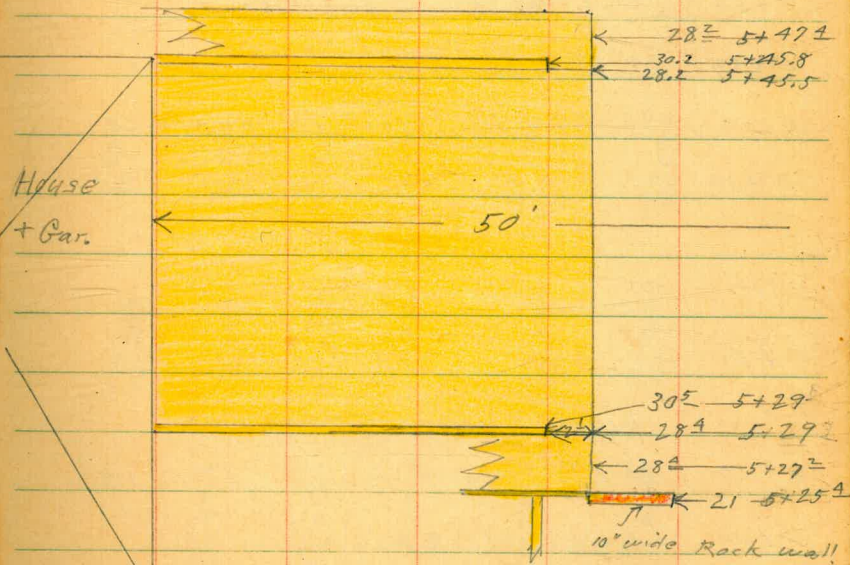 28² 5+47⁴
30.2 5+45.8
28.2 5+45.5
House
+ Gar.
50'
30⁵ 5+29
2'
28⁴ 5+29
28⁴ 5+27²
21 5+25⁴
10" wide Rock wall